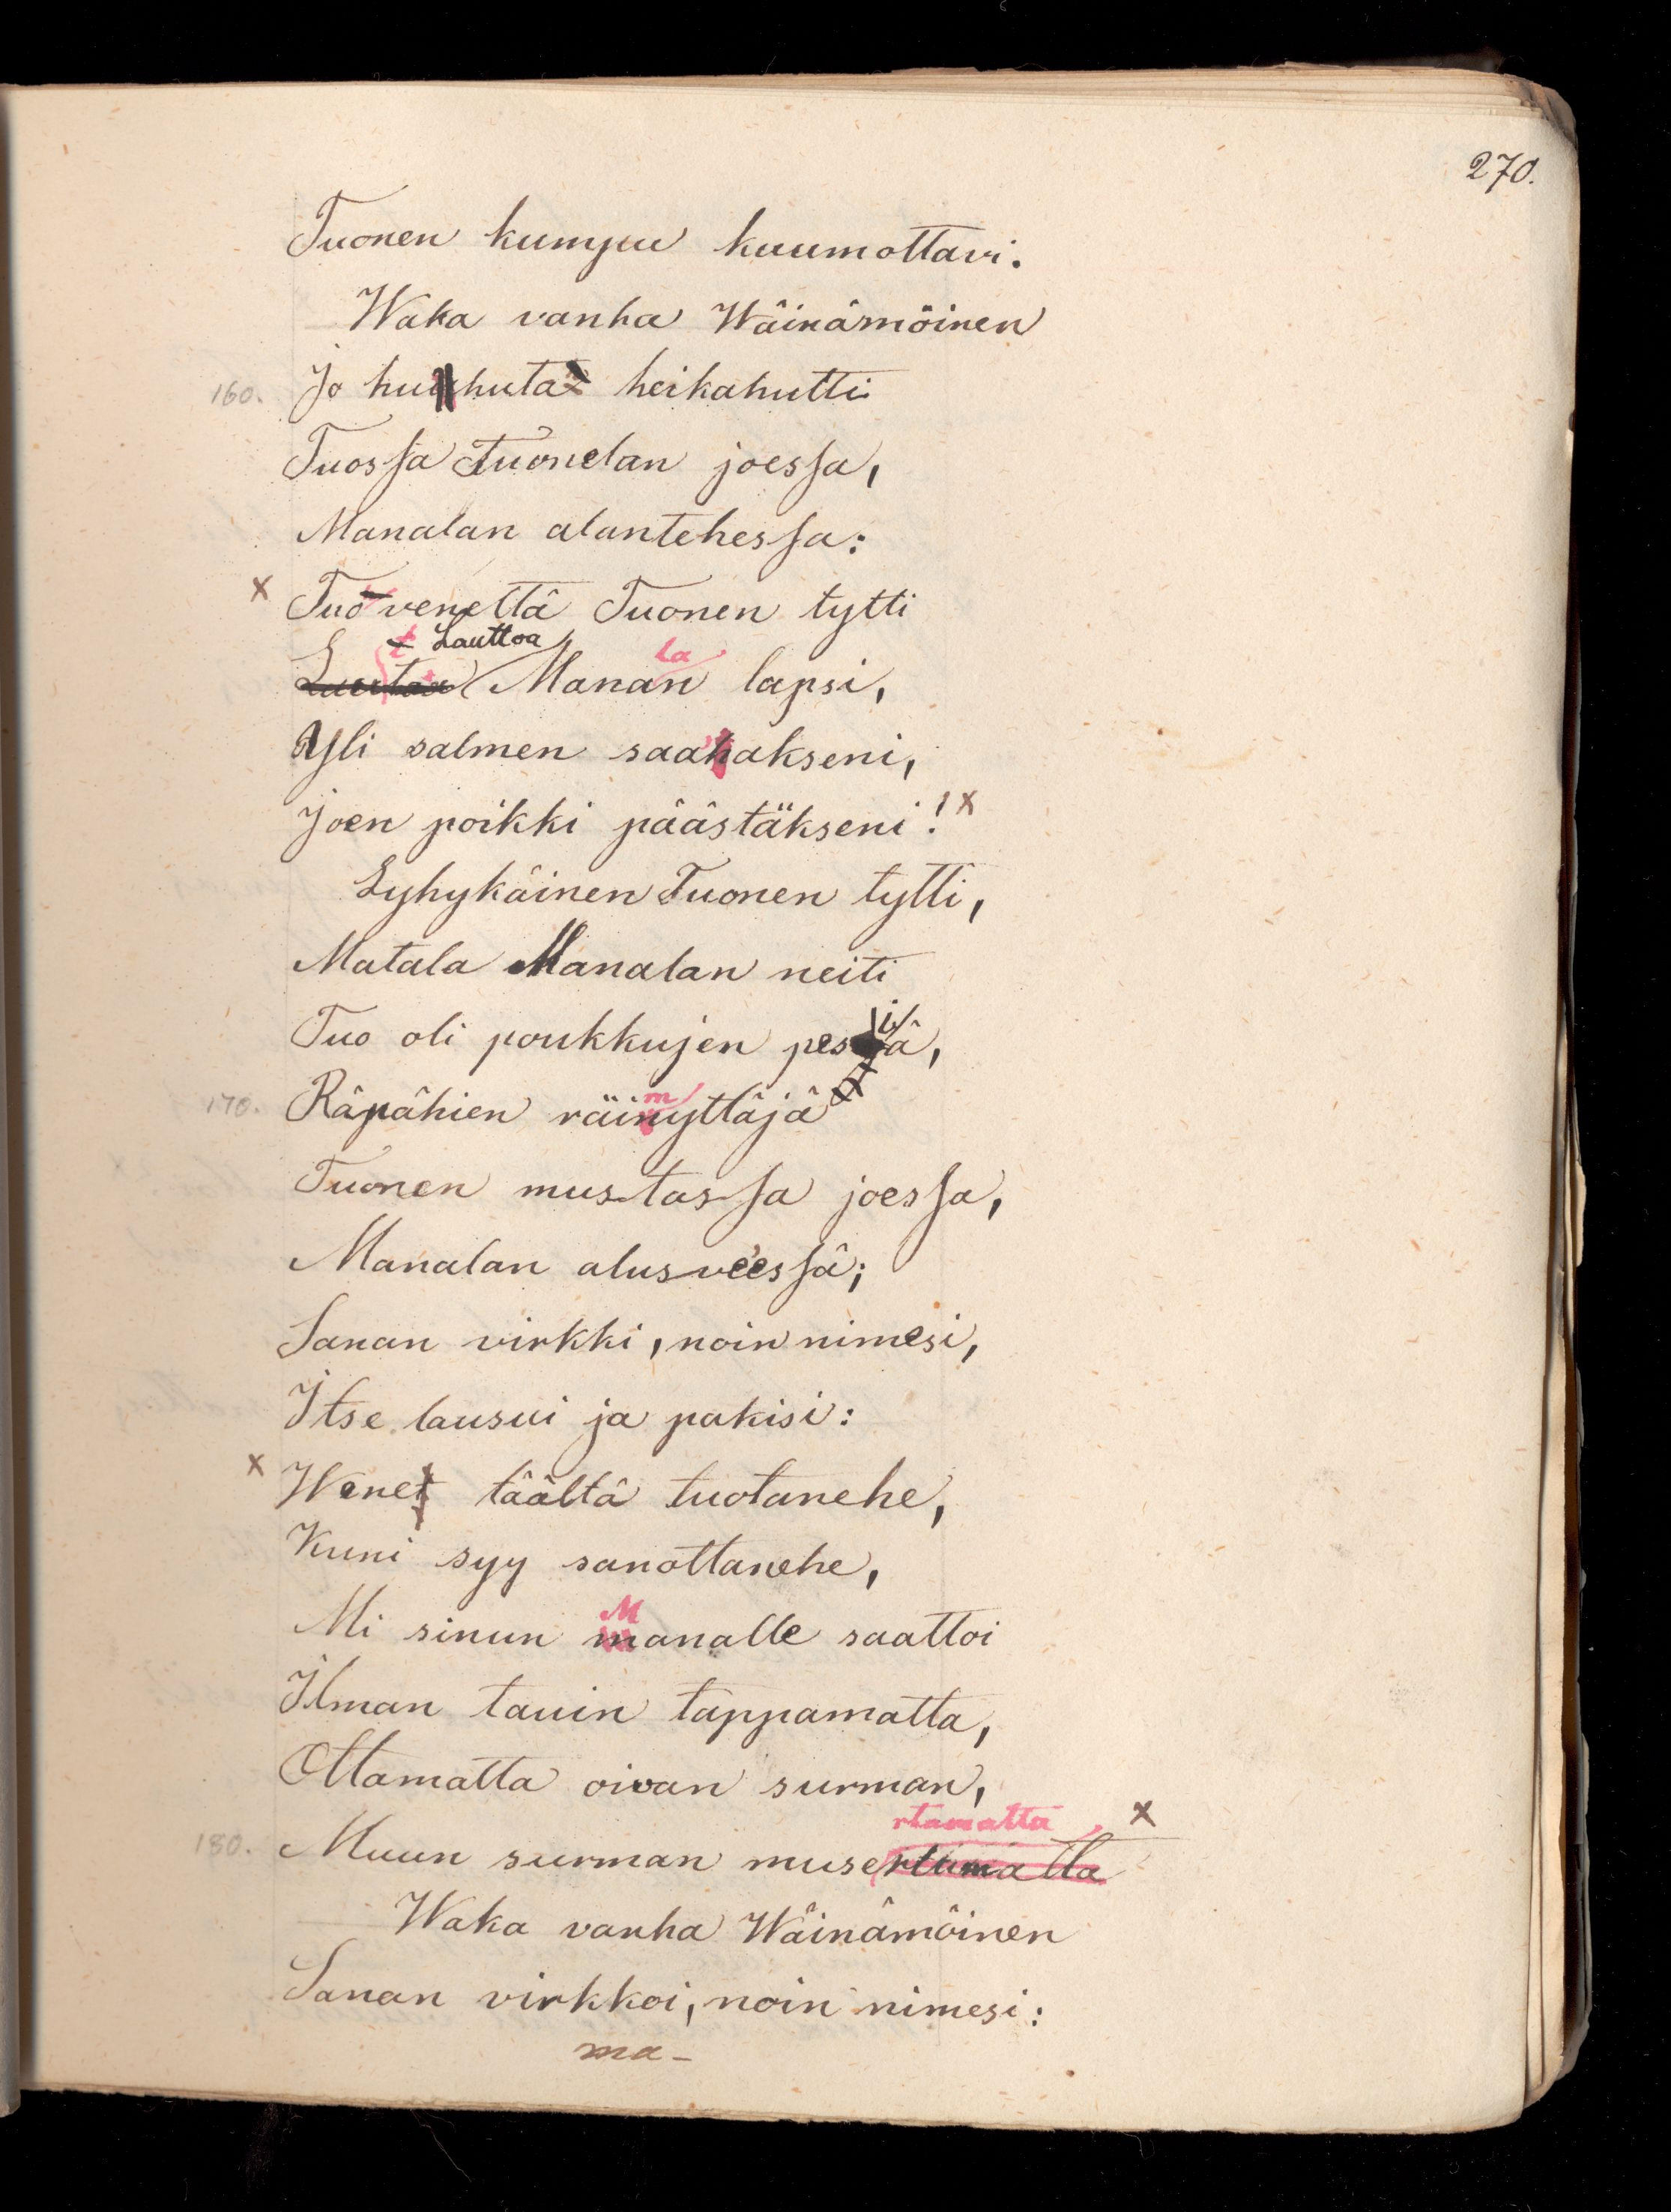 270.
Tuonen kumpu kuumottavi.
Waka vanha Wäinämöinen
160. Jo huhuta heikahutti
Tuossa Tuonelan joessa,
Manalan alantehessa:
x Tuo venettä Tuonen tytti
Lauttoa
la
Manan lapsi,
Yli salmen saahakseni,
Joen poikki päästäkseni! x
Lyhykäinen Tuonen tytti,
Matala Manalan neiti
i
Tuo oli poukkujen pesiä,
m
170. Räpähien räinyttäjä
Tuonen mustassa joessa,
Manalan alusveessä;
Sanan virkki, noin nimesi,
Itse lausui ja pakisi:
x Wenet täältä tuotanehe,
Kuni syy sanottanehe,
M
Mi sinun manalle saattoi
Ilman tauin tappamatta,
Ottamatta oivan surman,
rtamatta x
180. Muun surman musertamatta
Waka vanha Wäinämöinen
Sanan virkkoi, noin nimesi:
ma-